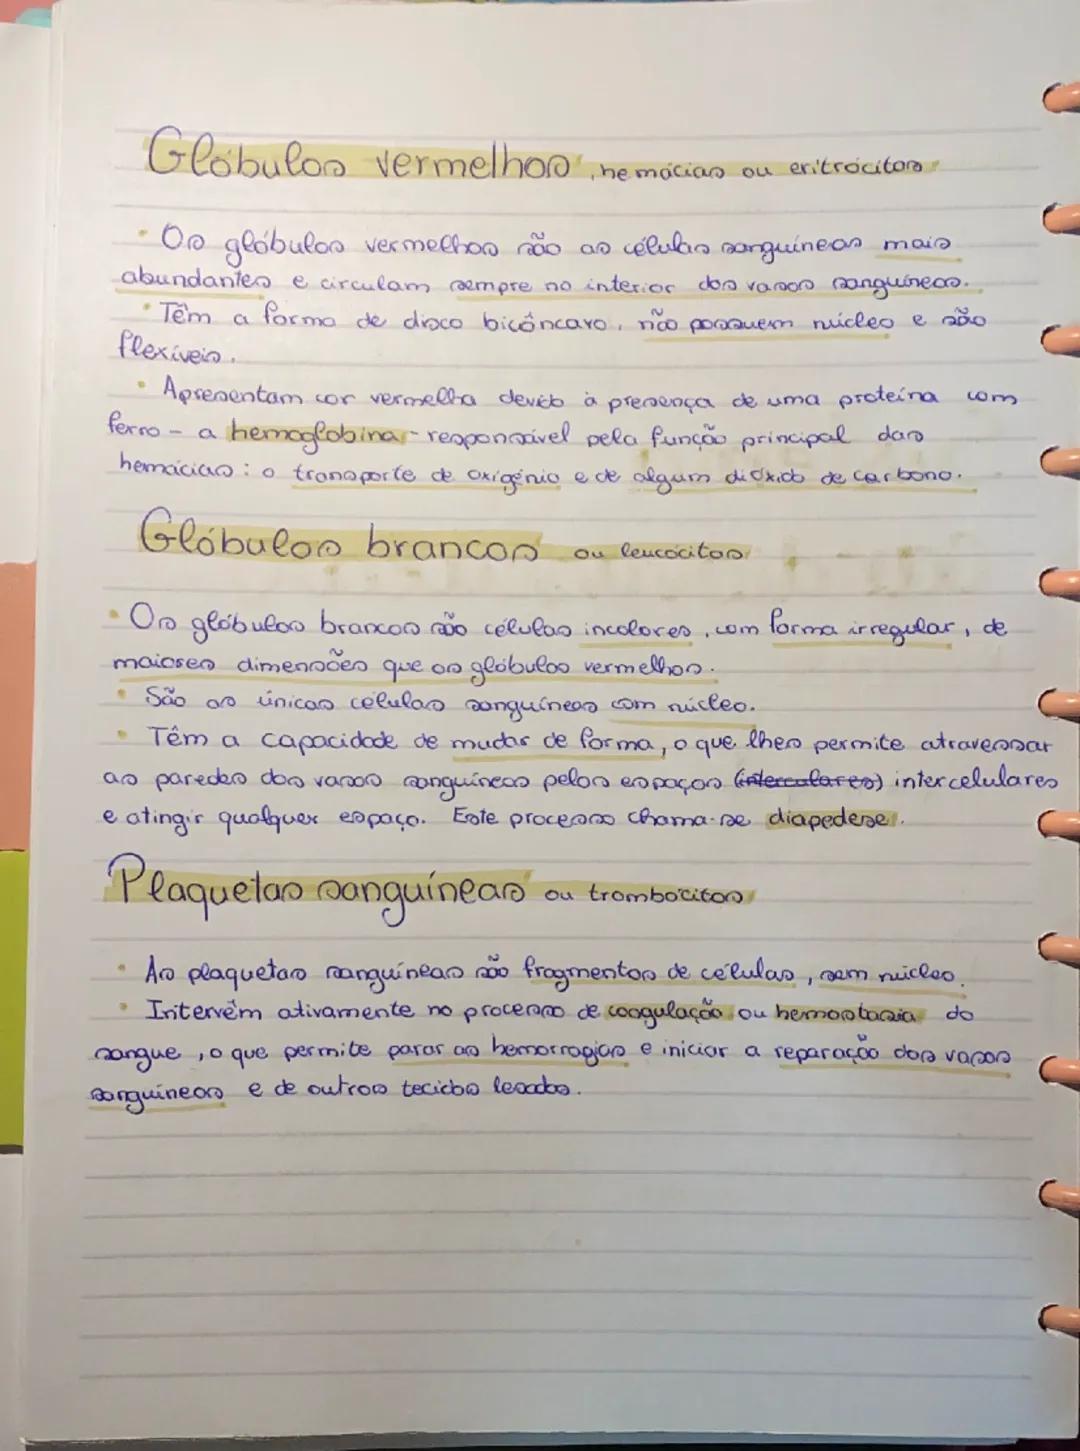 Glóbulos vermelhos, hemácias ou eritrócitos
• Os glóbulos vermelhos são as células sanguíneas mais
abundantes e circulam sempre no interior dos vasos sanguíneos.
• Têm a forma de disco bicôncavo, não possuem núcleo e são
flexíveis.
• Apresentam cor vermelha devido à presença de uma proteína com
ferro - a hemoglobina - responsável pela função principal das
hemácias: o transporte de oxigénio e de algum dióxido de carbono.
Glóbulos brancos ou leucócitos
• Os glóbulos brancos são células incolores, com forma irregular, de
maiores dimensões que os glóbulos vermelhos.
• São as únicas células sanguíneas com núcleo.
• Têm a capacidade de mudar de forma, o que lhes permite atravessar
as paredes dos vasos sanguíneos pelos espaços (interculares) intercelulares
e atingir qualquer espaço. Este processo chama-se diapedese.
Plaquetas sanguíneas ou trombócitos
• As plaquetas sanguíneas são fragmentos de células, sem núcleo.
• Intervêm ativamente no processo de coagulação ou hemostasia do
sangue, o que permite parar as hemorragias e iniciar a reparação dos vasos
sanguíneos e de outros tecidos lesados.